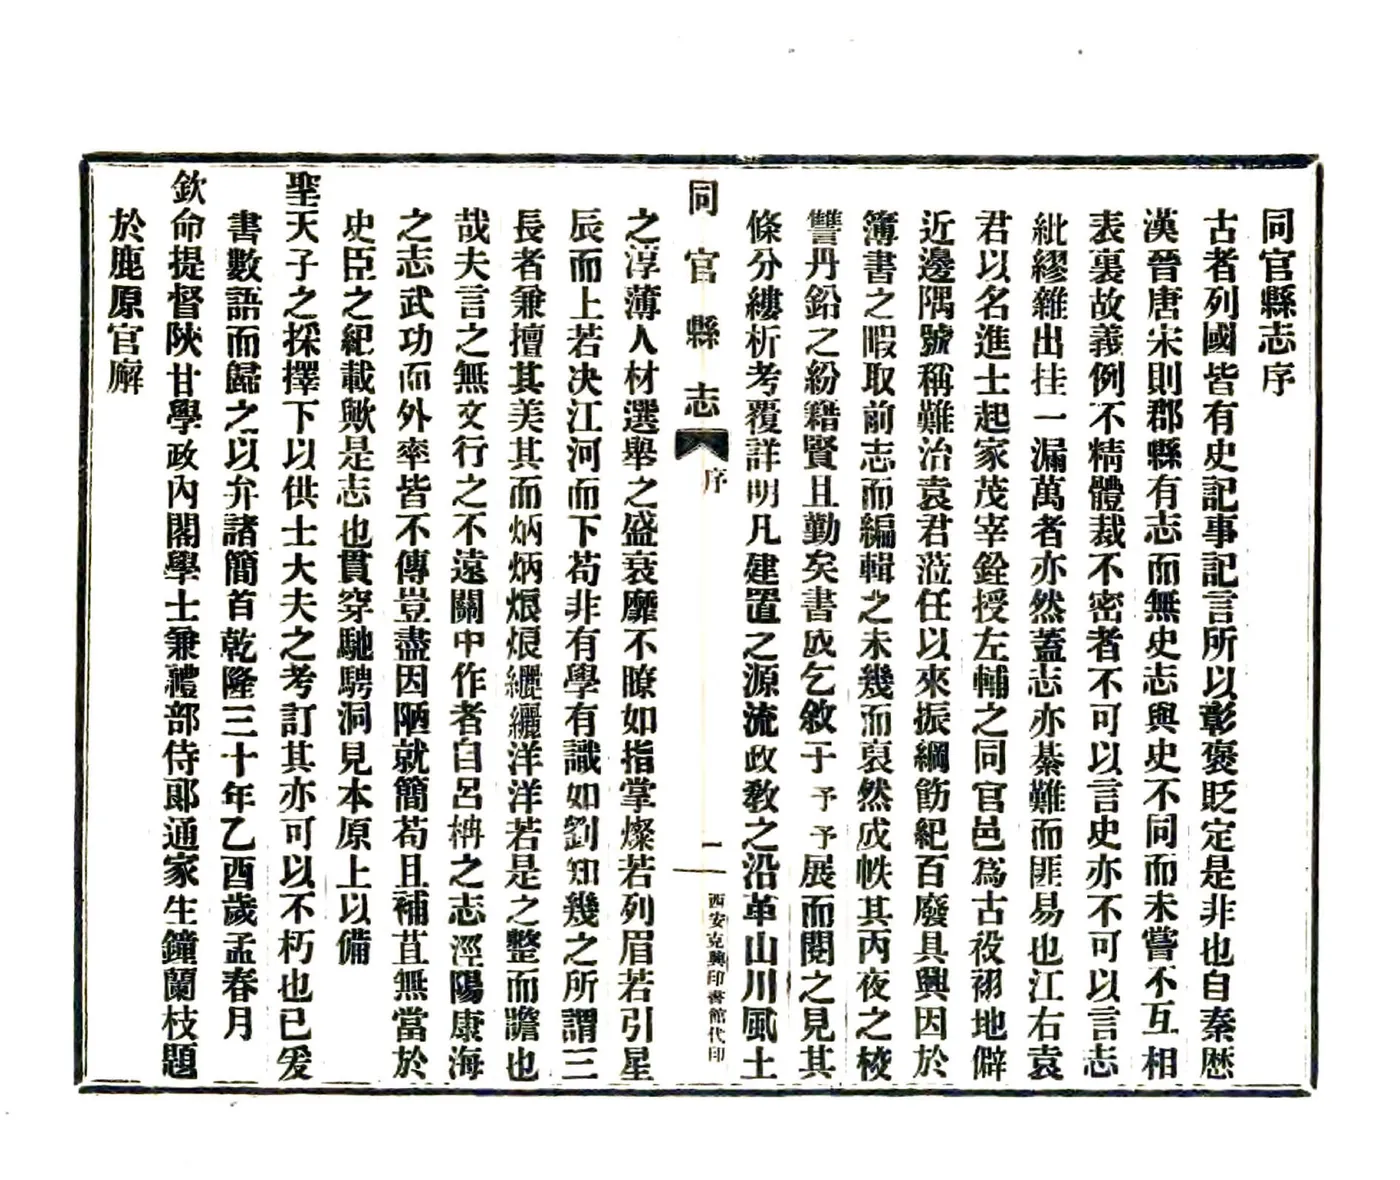 同官縣志序
古者列國皆有史記事記言所以彰褒貶定是非也自秦歷
漢晉唐宋則郡縣有志而無史志與史不同而未嘗不互相
表裏故義例不精體裁不密者不可以言史亦不可以言志
紕繆雜出挂一漏萬者亦然蓋志亦綦難而匪易也江右袁
君以名進士起家茂宰銓授左輔之同官邑為古祋祤地僻
近邊隅號稱難治袁君蒞任以來振綱飭紀百廢具興因於
簿書之暇取前志而編輯之未幾而裒然成帙其丙夜之校
讐丹鉛之紛藉賢且勤矣書成乞敘于予予展而閱之見其
條分縷析考覆詳明凡建置之源流政教之沿革山川風土
同官縣志
序
一
西安克興印書館代印
之淳薄人材選舉之盛衰靡不瞭如指掌燦若列眉若引星
辰而上若决江河而下苟非有學有識如劉知幾之所謂三
長者兼擅其美其而炳炳烺烺纚纚洋洋若是之整而贍也
哉夫言之無文行之不遠關中作者自呂柟之志涇陽康海
之志武功而外率皆不傳豈盡因陋就簡苟且補苴無當於
史臣之紀載歟是志也貫穿馳騁洞見本原上以備
聖天子之採擇下以供士大夫之考訂其亦可以不朽也已爰
書數語而歸之以弁諸簡首乾隆三十年乙酉歲孟春月
欽命提督陝甘學政內閣學士兼禮部侍郎通家生鐘蘭枝題
於鹿原官廨